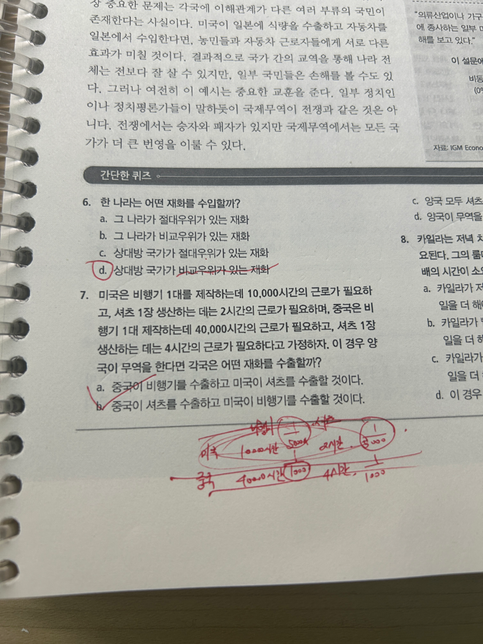 상 중요한 문제는 각국에 이해관계가 다른 여러 부류의 국민이
존재한다는 사실이다. 미국이 일본에 식량을 수출하고 자동차를
일본에서 수입한다면, 농민들과 자동차 근로자들에게 서로 다른
효과가 미칠 것이다. 결과적으로 국가 간의 교역을 통해 나라 전
체는 전보다 잘 살 수 있지만, 일부 국민들은 손해를 볼 수도 있
다. 그러나 여전히 이 예시는 중요한 교훈을 준다. 일부 정치인
이나 정치평론가들이 말하듯이 국제무역이 전쟁과 같은 것은 아
니다. 전쟁에서는 승자와 패자가 있지만 국제무역에서는 모든 국
가가 더 큰 번영을 이룰 수 있다.
간단한 퀴즈
6. 한 나라는 어떤 재화를 수입할까?
a. 그 나라가 절대우위가 있는 재화
b. 그 나라가 비교우위가 있는 재화
c. 상대방 국가가 절대우위가 있는 재화
d. 상대방 국가가 비교우위가 있는 재화
7. 미국은 비행기 1대를 제작하는데 10,000시간의 근로가 필요하
고, 셔츠 1장 생산하는 데는 2시간의 근로가 필요하며, 중국은 비
행기 1대 제작하는데 40,000시간의 근로가 필요하고, 셔츠 1장
생산하는 데는 4시간의 근로가 필요하다고 가정하자. 이 경우 양
국이 무역을 한다면 각국은 어떤 재화를 수출할까?
a. 중국이 비행기를 수출하고 미국이 셔츠를 수출할 것이다.
b. 중국이 셔츠를 수출하고 미국이 비행기를 수출할 것이다.
미국 2시간
중국 4시간 1/1000
"의류산업이나 가구
에 종사하는 일부
해를 보고 있다."
이 설문에
자료: IGM Econo
c. 양국 모두 셔츠
d. 양국이 무역을
8. 카일라는 저녁
요된다. 그의 룸
배의 시간이 소
a. 카일라가
일을 더
b. 카일라가
일을 더
c. 카일라가
일을 더
d. 이 경우